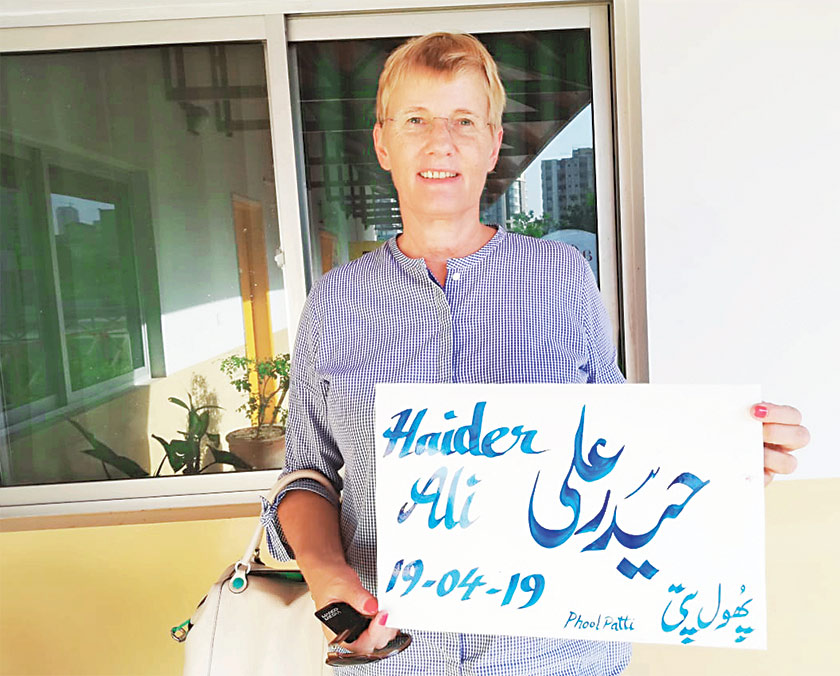 Haider
Ali
حیدر علی
19-04-19
Phool Patti
پھُول پتی